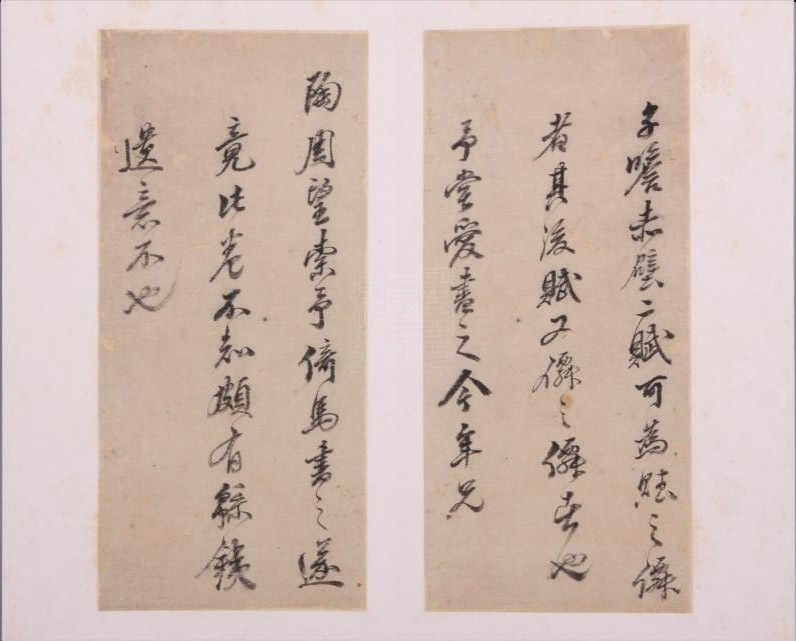 子瞻赤壁二賦可為賦之僊
者其後賦又僊之僊者也
予嘗愛書之今年兄
陶周望索予倚馬書之遂
竟此卷不知頗有繇
遺意不也